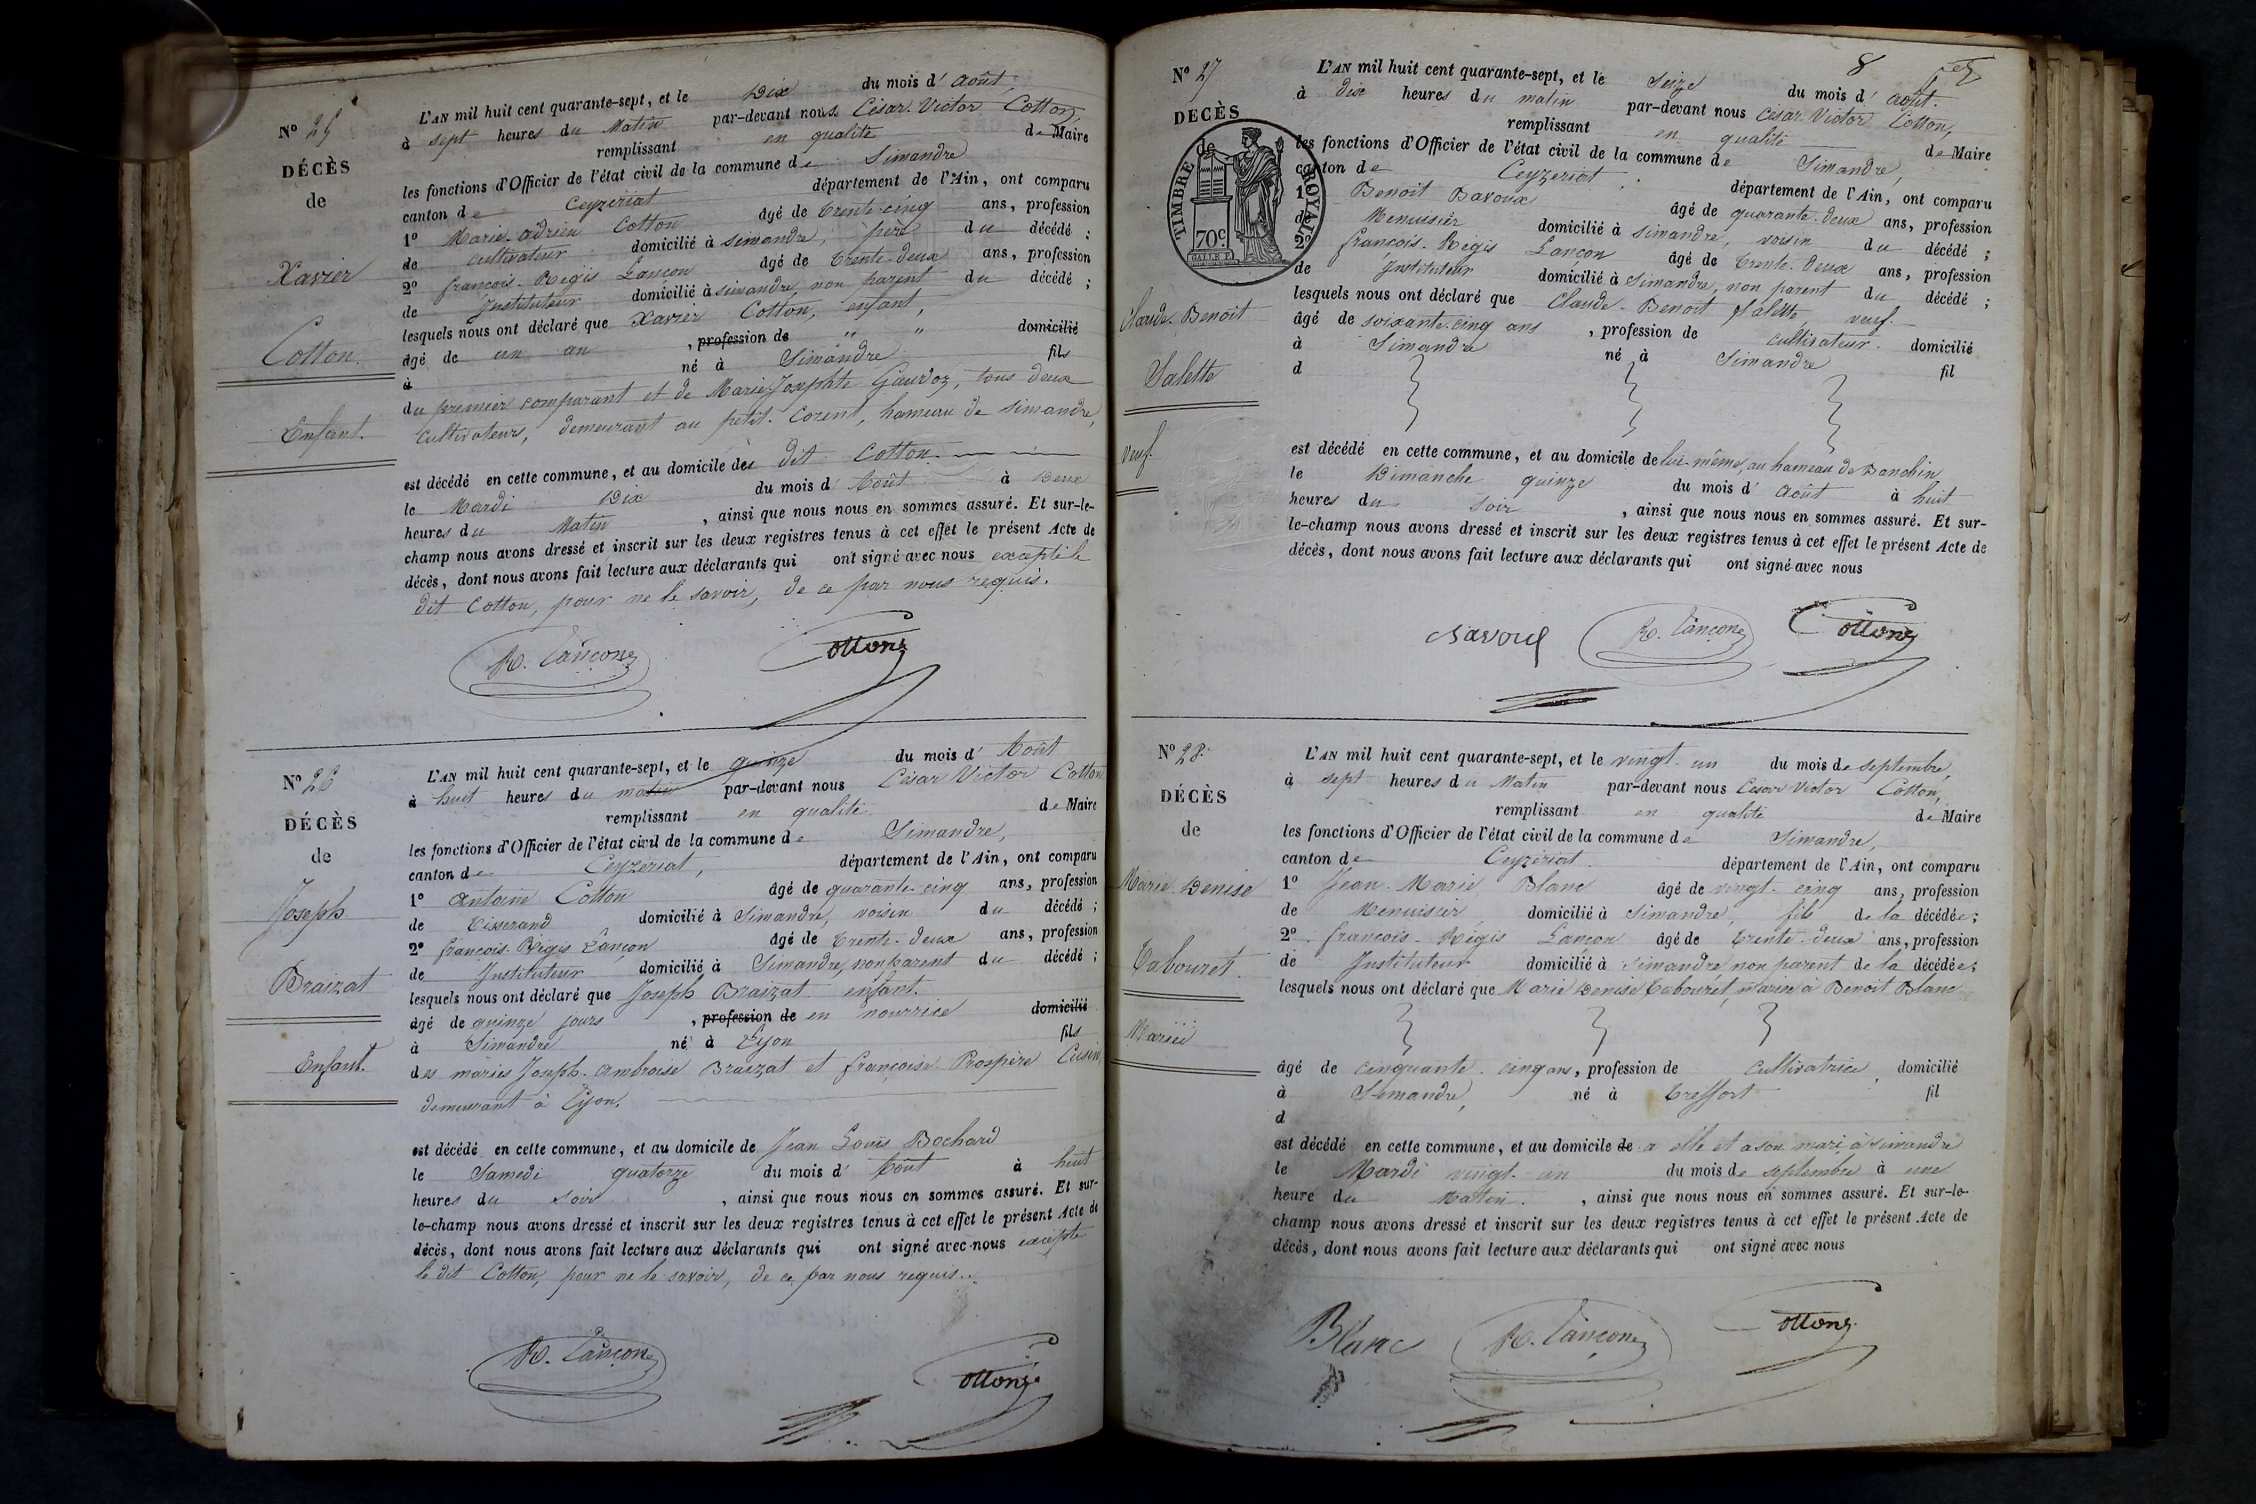 N° 25
DÉCÈS
de
Xavier
Cotton.
Enfant.
L'AN mil huit cent quarante-sept, et le Dix du mois d' Août,
à sept heures du Matin par-devant nous César Victor Cotton,
remplissant en qualité de Maire
les fonctions d'Officier de l'état civil de la commune de Simandre
canton de Ceyzériat département de l'Ain, ont comparu
1° Marie-Adrien Cotton âgé de trente-cinq ans, profession
de cultivateur domicilié à Simandre, père du décédé ;
2° françois-Régis Lançon âgé de trente-deux ans, profession
de Instituteur domicilié à Simandre, non parent du décédé ;
lesquels nous ont déclaré que Xavier Cotton, enfant,
âgé de un an , profession de " " domicilié
à né à Simandre fils
du premier comparant et de Marie Josephte Gaudoz, tous deux
cultivateurs, demeurant au petit-Corent, hameau de Simandre,
est décédé en cette commune, et au domicile de dit Cotton
le Mardi Dix du mois d' Août à Deux
heures du Matin , ainsi que nous nous en sommes assuré. Et sur-le-
champ nous avons dressé et inscrit sur les deux registres tenus à cet effet le présent Acte de
décès, dont nous avons fait lecture aux déclarants qui ont signé avec nous excepté le
dit Cotton, pour ne le savoir, de ce par nous requis.
R. Lançon Cotton
N° 26
DÉCÈS
de
Joseph
Braizat
Enfant.
L'AN mil huit cent quarante-sept, et le quinze du mois d' Août
à huit heures du matin par-devant nous César Victor Cotton
remplissant en qualité de Maire
les fonctions d'Officier de l'état civil de la commune de Simandre,
canton de Ceyzériat, département de l'Ain, ont comparu
1° Antoine Cotton âgé de quarante-cinq ans, profession
de Tisserand domicilié à Simandre, voisin du décédé ;
2° françois-Régis Lançon âgé de trente-deux ans, profession
de Instituteur domicilié à Simandre, non parent du décédé ;
lesquels nous ont déclaré que Joseph Braizat enfant.
âgé de quinze jours , profession de en nourrice domicilié
à Simandre né à Lyon fils
des mariés Joseph-Ambroise Braizat et françoise Prospère Cusin
demeurant à Lyon.
est décédé en cette commune, et au domicile de Jean Louis Bochard
le Samedi quatorze du mois d' Août à huit
heures du soir , ainsi que nous nous en sommes assuré. Et sur-
le-champ nous avons dressé et inscrit sur les deux registres tenus à cet effet le présent Acte de
décès, dont nous avons fait lecture aux déclarants qui ont signé avec nous excepté
le dit Cotton, pour ne le savoir, de ce par nous requis.
R. Lançon Cotton
8
N° 27
DÉCÈS
de
TIMBRE ROYAL
70c
Claude-Benoît
Salette
veuf.
L'AN mil huit cent quarante-sept, et le Seize du mois d' Août.
à dix heures du matin par-devant nous César Victor Cotton,
remplissant en qualité de Maire
les fonctions d'Officier de l'état civil de la commune de Simandre,
canton de Ceyzériat département de l'Ain, ont comparu
1° Benoit Davoux âgé de quarante-deux ans, profession
de Menuisier domicilié à Simandre, voisin du décédé ;
2° françois-Régis Lançon âgé de trente-deux ans, profession
de Instituteur domicilié à Simandre, non parent du décédé ;
lesquels nous ont déclaré que Claude-Benoit Salette veuf.
âgé de soixante-cinq ans , profession de cultivateur domicilié
à Simandre né à Simandre fil
d
est décédé en cette commune, et au domicile de lui-même, au hameau de Banchin
le Dimanche quinze du mois d' Août à huit
heures du soir , ainsi que nous nous en sommes assuré. Et sur-
le-champ nous avons dressé et inscrit sur les deux registres tenus à cet effet le présent Acte de
décès, dont nous avons fait lecture aux déclarants qui ont signé avec nous
R. Lançon Cotton
N° 28.
DÉCÈS
de
Marie Denise
Tabouret.
Mariée
L'AN mil huit cent quarante-sept, et le vingt-un du mois de septembre,
à sept heures du Matin par-devant nous César Victor Cotton,
remplissant en qualité de Maire
les fonctions d'Officier de l'état civil de la commune de Simandre,
canton de Ceyzériat. département de l'Ain, ont comparu
1° Jean-Marie Blanc âgé de vingt-cinq ans, profession
de Menuisier domicilié à Simandre, fils de la décédée ;
2° françois-Régis Lançon âgé de trente-deux ans, profession
de Instituteur domicilié à Simandre non parent de la décédée ;
lesquels nous ont déclaré que Marie Denise Tabouret, mariée à Benoit Blanc
âgé de cinquante-cinq ans, profession de Cultivatrice, domicilié
à Simandre, né à Treffort fil
d
est décédé en cette commune, et au domicile de a elle et a son mari, à Simandre
le Mardi vingt-un du mois de septembre à une
heure du Matin. , ainsi que nous nous en sommes assuré. Et sur-le-
champ nous avons dressé et inscrit sur les deux registres tenus à cet effet le présent Acte de
décès, dont nous avons fait lecture aux déclarants qui ont signé avec nous
Blanc R. Lançon Cotton